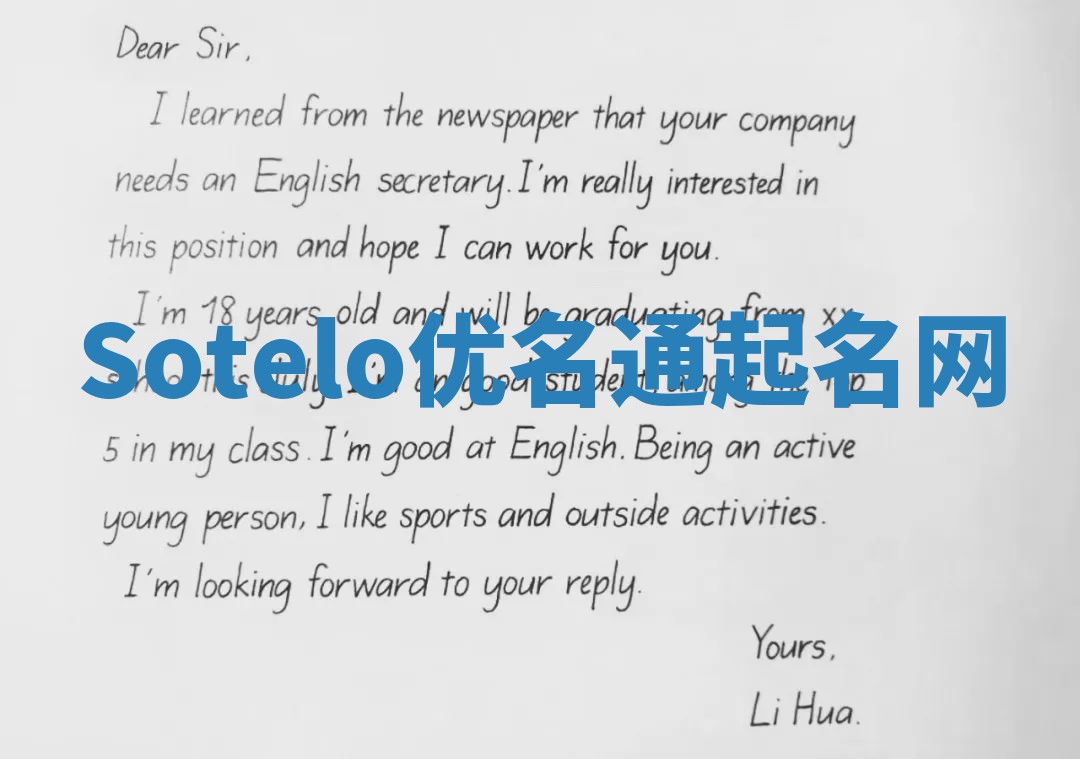 Dear Sir,
I learned from the newspaper that your company
needs an English secretary. I'm really interested in
this position and hope I can work for you.
I'm 18 years old and will be graduating from xx
Sotelo优名通起名网
school this July. I'm an good student, among the top
5 in my class. I'm good at English. Being an active
young person, I like sports and outside activities.
I'm looking forward to your reply.
Yours,
Li Hua.